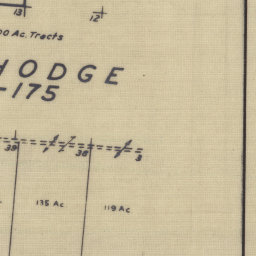 13
12
00 Ac. Tracts
HODGE
-175
39
38
3
135 Ac
119 Ac